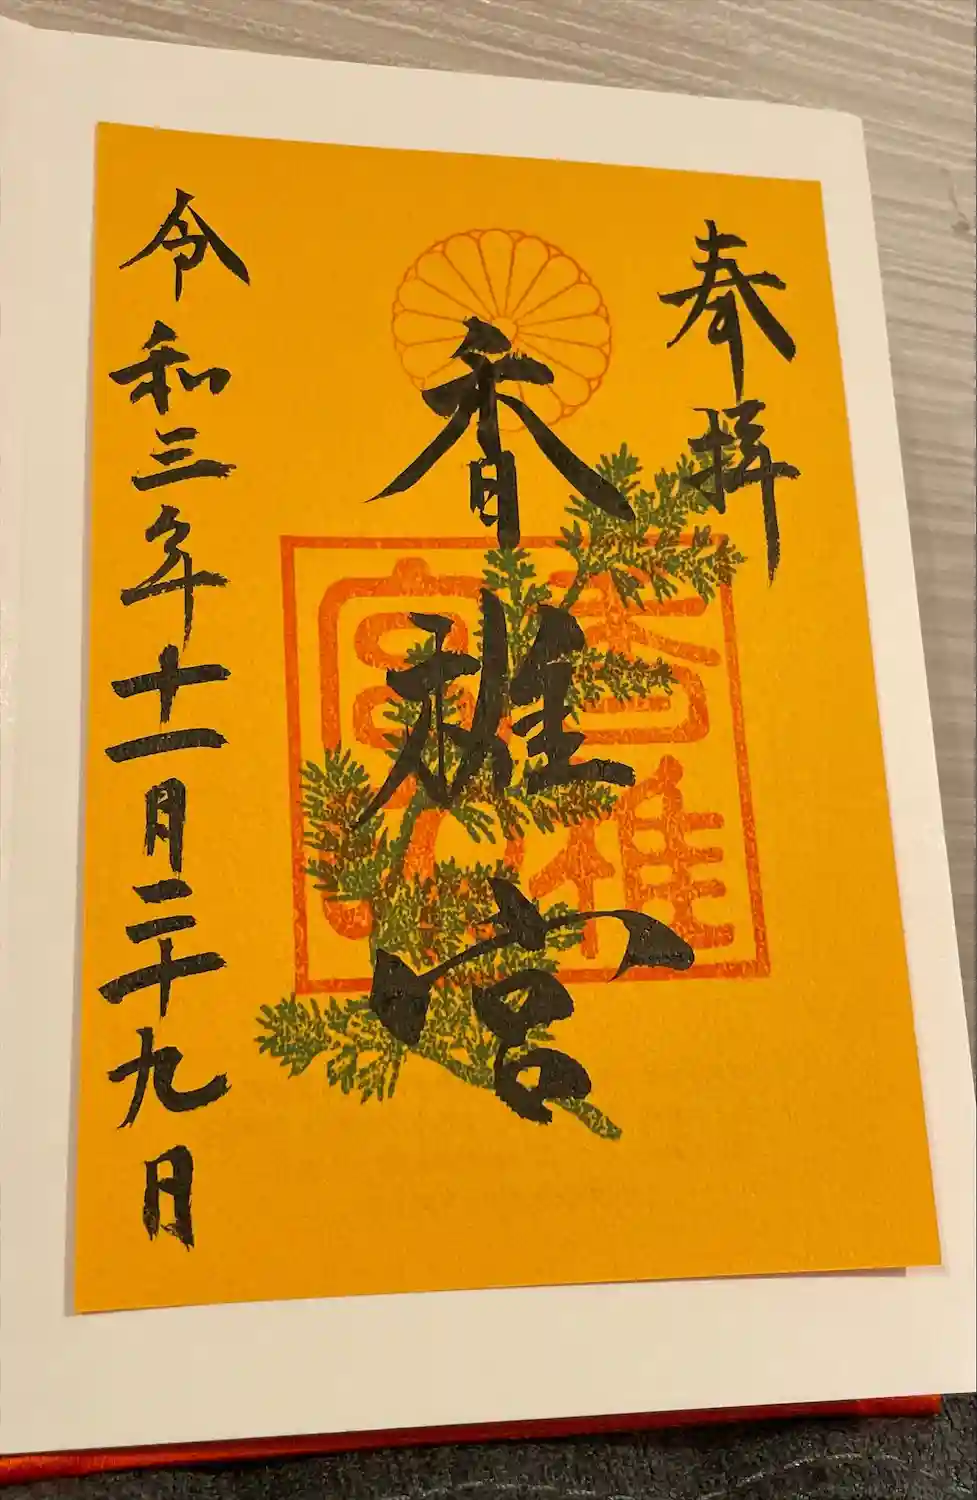 奉拝
香椎宮
香椎宮
令和三年十一月二十九日